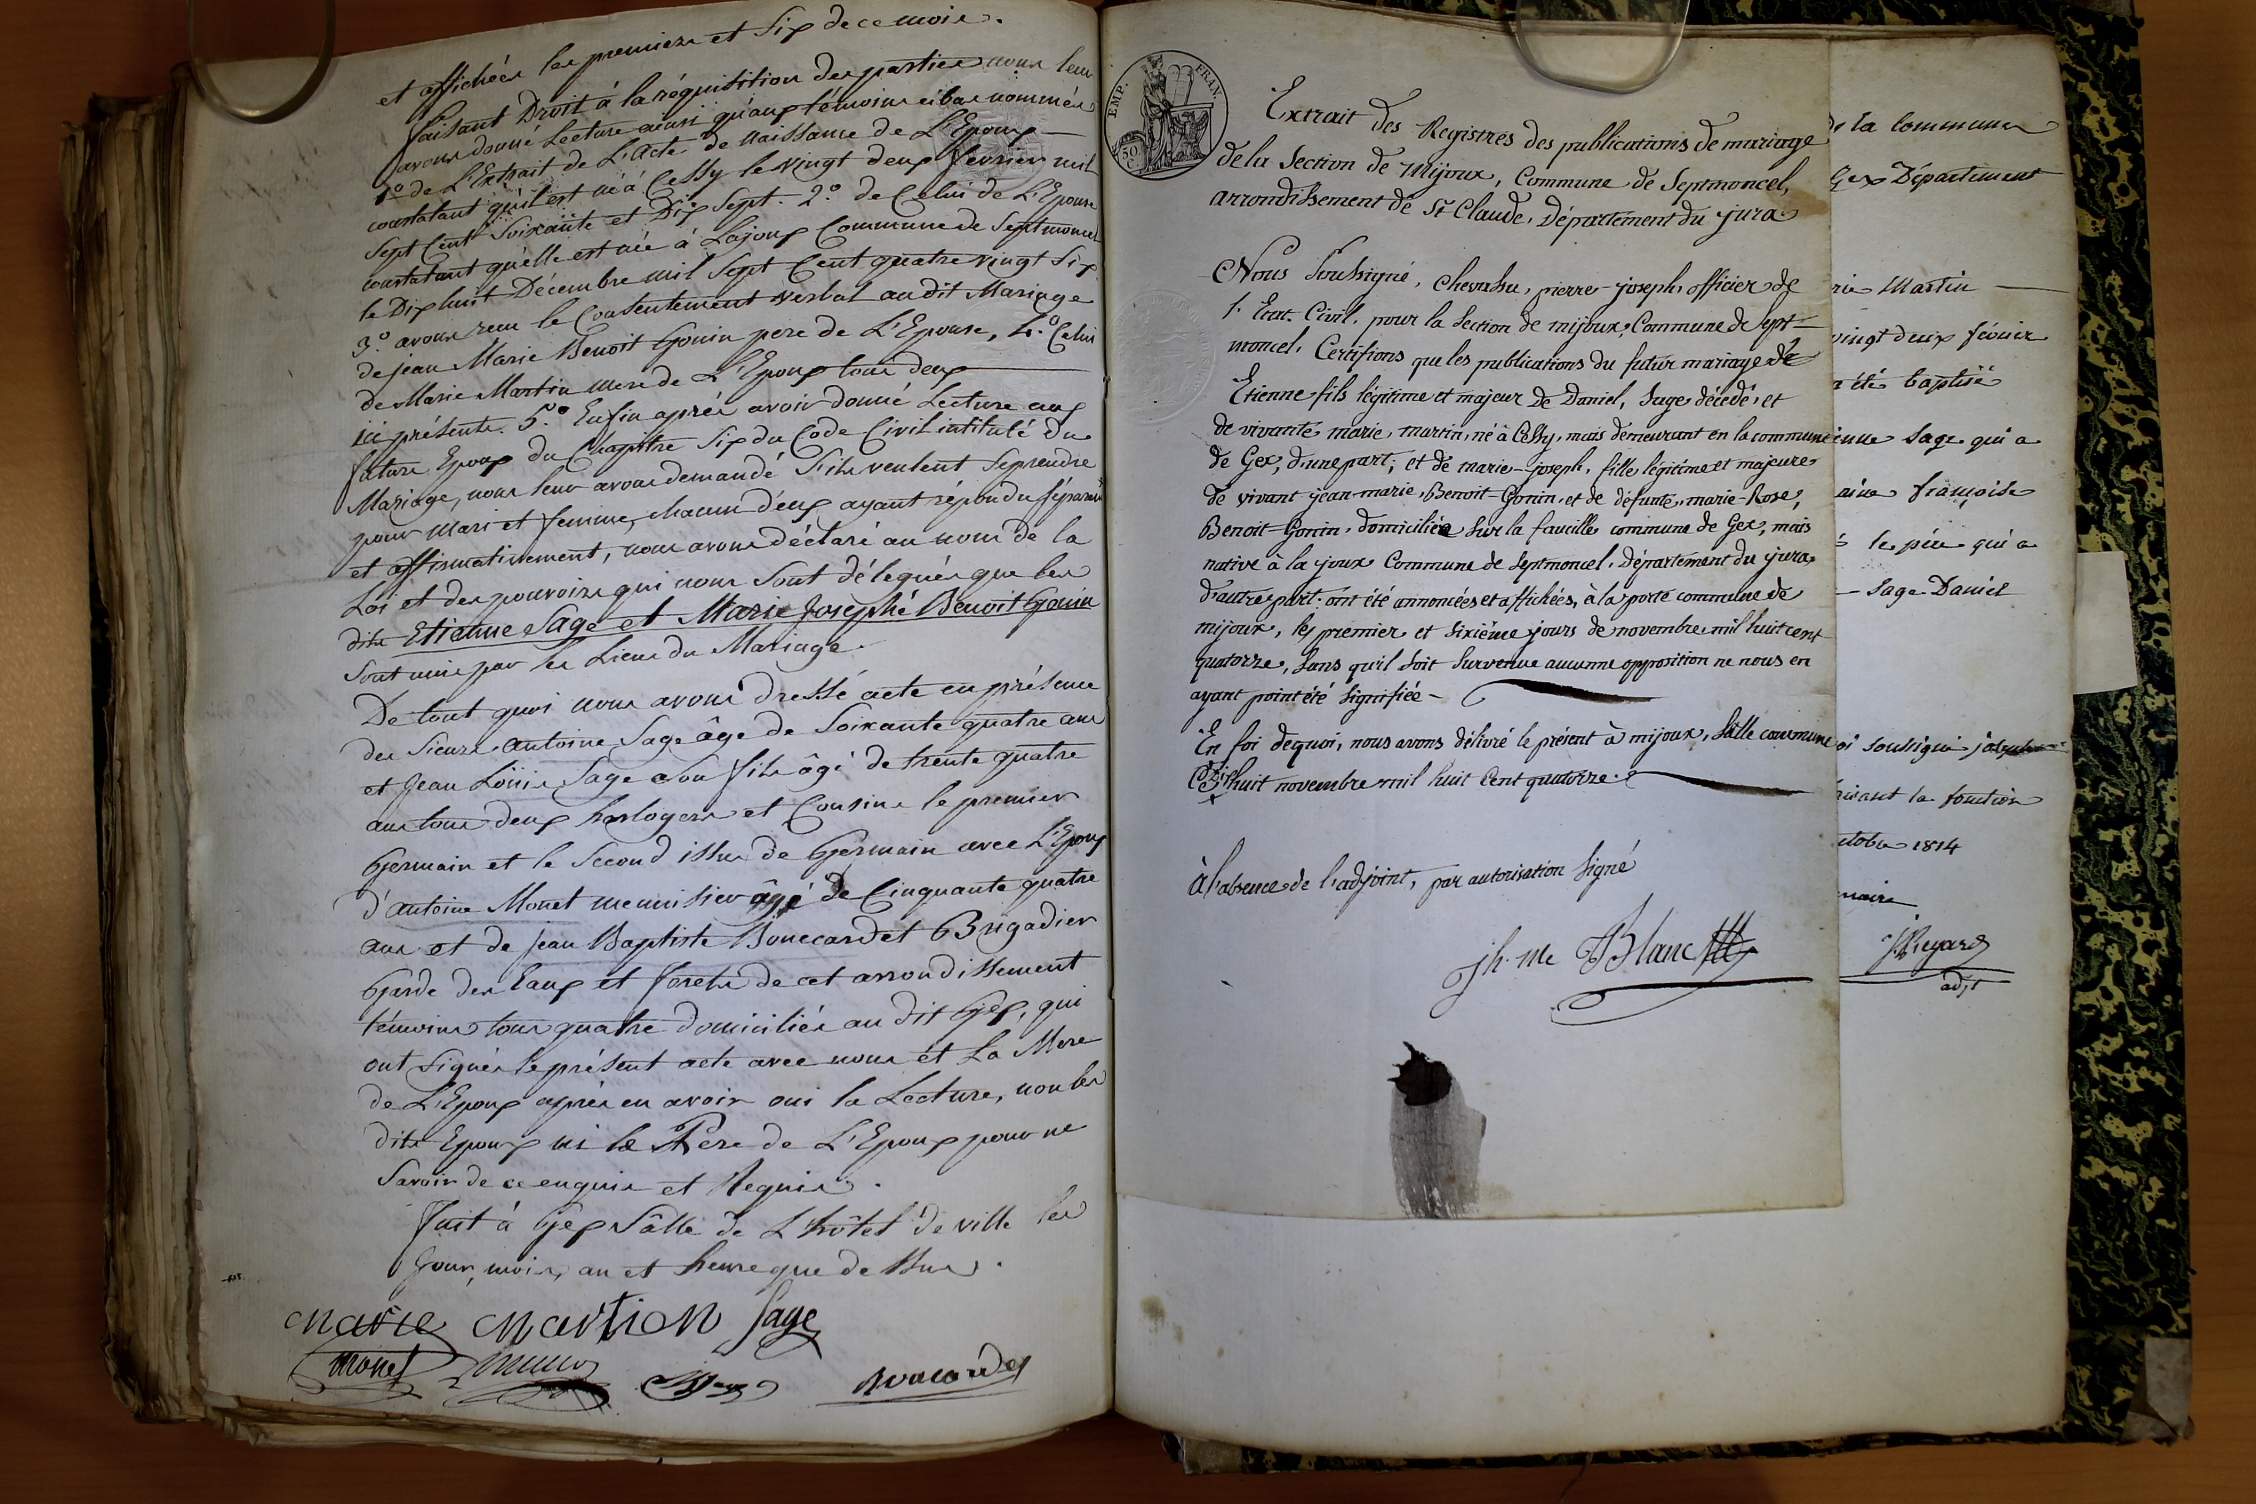 et affichées les premiere et Six de ce mois.
faisant Droit à la réquisition des parties nous leur
avons donné Lecture ainsi qu'aux témoins cibas nommés
1º de L'Extrait de L'Acte de naissance de L'Epoux
constatant qu'il est né à Cessy le vingt deux fevrier mil
Sept Cent Soixante et Dix Sept. 2º de Celui de L'Epouse
constatant qu'elle est née à Lajoux Commune de Septmoncel
le Dix huit Décembre mil Sept Cent quatre vingt Six
3º avons reçu le Consentement verbal au dit Mariage
de jean Marie Benoit Gonin pere de L'Epouse, 4º Celui
de Marie Martin mere de L'Epoux tous deux
ici présents. 5º Enfin après avoir donné Lecture aux
futurs Epoux du Chapitre Six du Code Civil intitulé du
Mariage, nous leur avons demandé S'ils veulent Se prendre
pour mari et femme, chacun d'eux ayant répondu séparemt
et affirmativement, nous avons déclaré au nom de la
Loi et des pouvoirs qui nous Sont délégués que les
dits Etienne Sage et Marie Josephé Benoit Gonin
Sont unis par les Liens du Mariage.
De tout quoi nous avons dressé acte en présence
des Sieurs Antoine Sage âge de Soixante quatre ans
et Jean Loüis Sage son fils âgé de trente quatre
ans tous deux horlogers et Cousins le premier
Germain et le Second issu de Germain avec L'Epoux
d'antoine Monet menuisier âgé de Cinquante quatre
ans et de jean Baptiste Bouecardet Brigadier
Garde des Eaux et forets de cet arrondissement
témoins tous quatre domiciliés au dit Gex, qui
ont Signés le présent acte avec nous et La Mere
de L'Epoux après en avoir oui la Lecture, non les
dits Epoux ni le Pere de L'Epoux pour ne
Savoir de ce enquis et Requis.
Fait à Gex Sâlle de L'hôtel de ville les
Jour, mois, an et heure que dessus.
Marie Martion Sage
Monet
Bouacardet
EMP. FRAN.
50 C
Extrait des Registres des publications de mariage
de la Section de Mijoux, Commune de Septmoncel,
arrondissement de St Claude, Département du jura.
Nous Soussigné, Chevassu, pierre-joseph, officier de
l'Etat. Civil. pour la Section de mijoux, Commune de Sept-
moncel, Certifions que les publications du futur mariage de
Etienne fils légitime et majeur De Daniel, Sage décédé, et
de vivante marie, martin, né à Cessy, mais demeurant en la commune
de Gex, d'une part; et de marie-joseph, fille légitime et majeure
de vivant jean-marie, Benoit-Gonin, et de défunte, marie-Rose,
Benoit-Gonin, domiciliée Sur la faucille commune de Gex, mais
native à la joux Commune de Septmoncel, Département du jura
d'autre part; ont été annoncées et affichées, à la porte commune de
mijoux, les premier et sixième jours de novembre mil huit cent
quatorze, Sans qu'il Soit Survenue aucunne opposition ne nous en
ayant point été Signifiée -
En foi de quoi, nous avons délivré le présent à mijoux, Salle commune
Ce dix huit novembre mil huit Cent quatorze.
à l'absence de l'adjoint, par autorisation Signé
jh. me Blanc
de la Commune
Gex Département
rie Martin
vingt deux février
été baptisé
ienne Sage qui a
françoise
le père qui a
Sage Daniel
oi soussigné
faisant la fonction
octobre 1814
maire
adjt